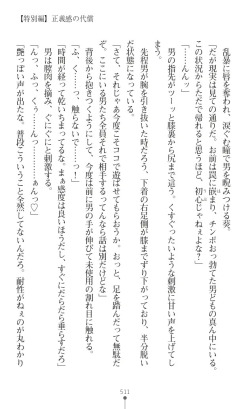 【特別編】正義感の代償
乱暴に唇を奪われ、涙ぐむ瞳で男を睨みつける
「だが現実は見ての通りだ。お前は罠に嵌まり、チンポおっ勃てた男どもの真ん中だ。
この状況からただで帰れると思うほど、初心じゃねぇよな？」
男の指先がツーッと膝裏から尻を撫でる。くすぐったいような刺激に甘い声を上げてし
先程男が腕を引き抜いた時だろう、下着の右足側が膝までずり下がっており、半分脱い
だ状態になっている。
「さて、それじゃあ今度こそココで遊ばせてもらおうか。おっと、足を踏んだって無駄だ
ぞ。ここにいる男たちを全員それで相手するってんなら話は別だがな」
背後から抱きつくようにして、今度は前から男の手が伸びて未使用の割れ目に触れる。
「ふ、くぅっ………んっ」
「時間が経って乾いちまってるな。まぁ感度は良いほうだし、すぐにだらだら垂らすだろ」
男は膣肉を摘み、ぐにぐにと刺激する。
「んっ、ふっ、くぅっ……んっ……ぁんっ♡」
「艶っぽい声が出たな。普段こういうこと全然してないんだろ。耐性がねぇのが丸わかり
511